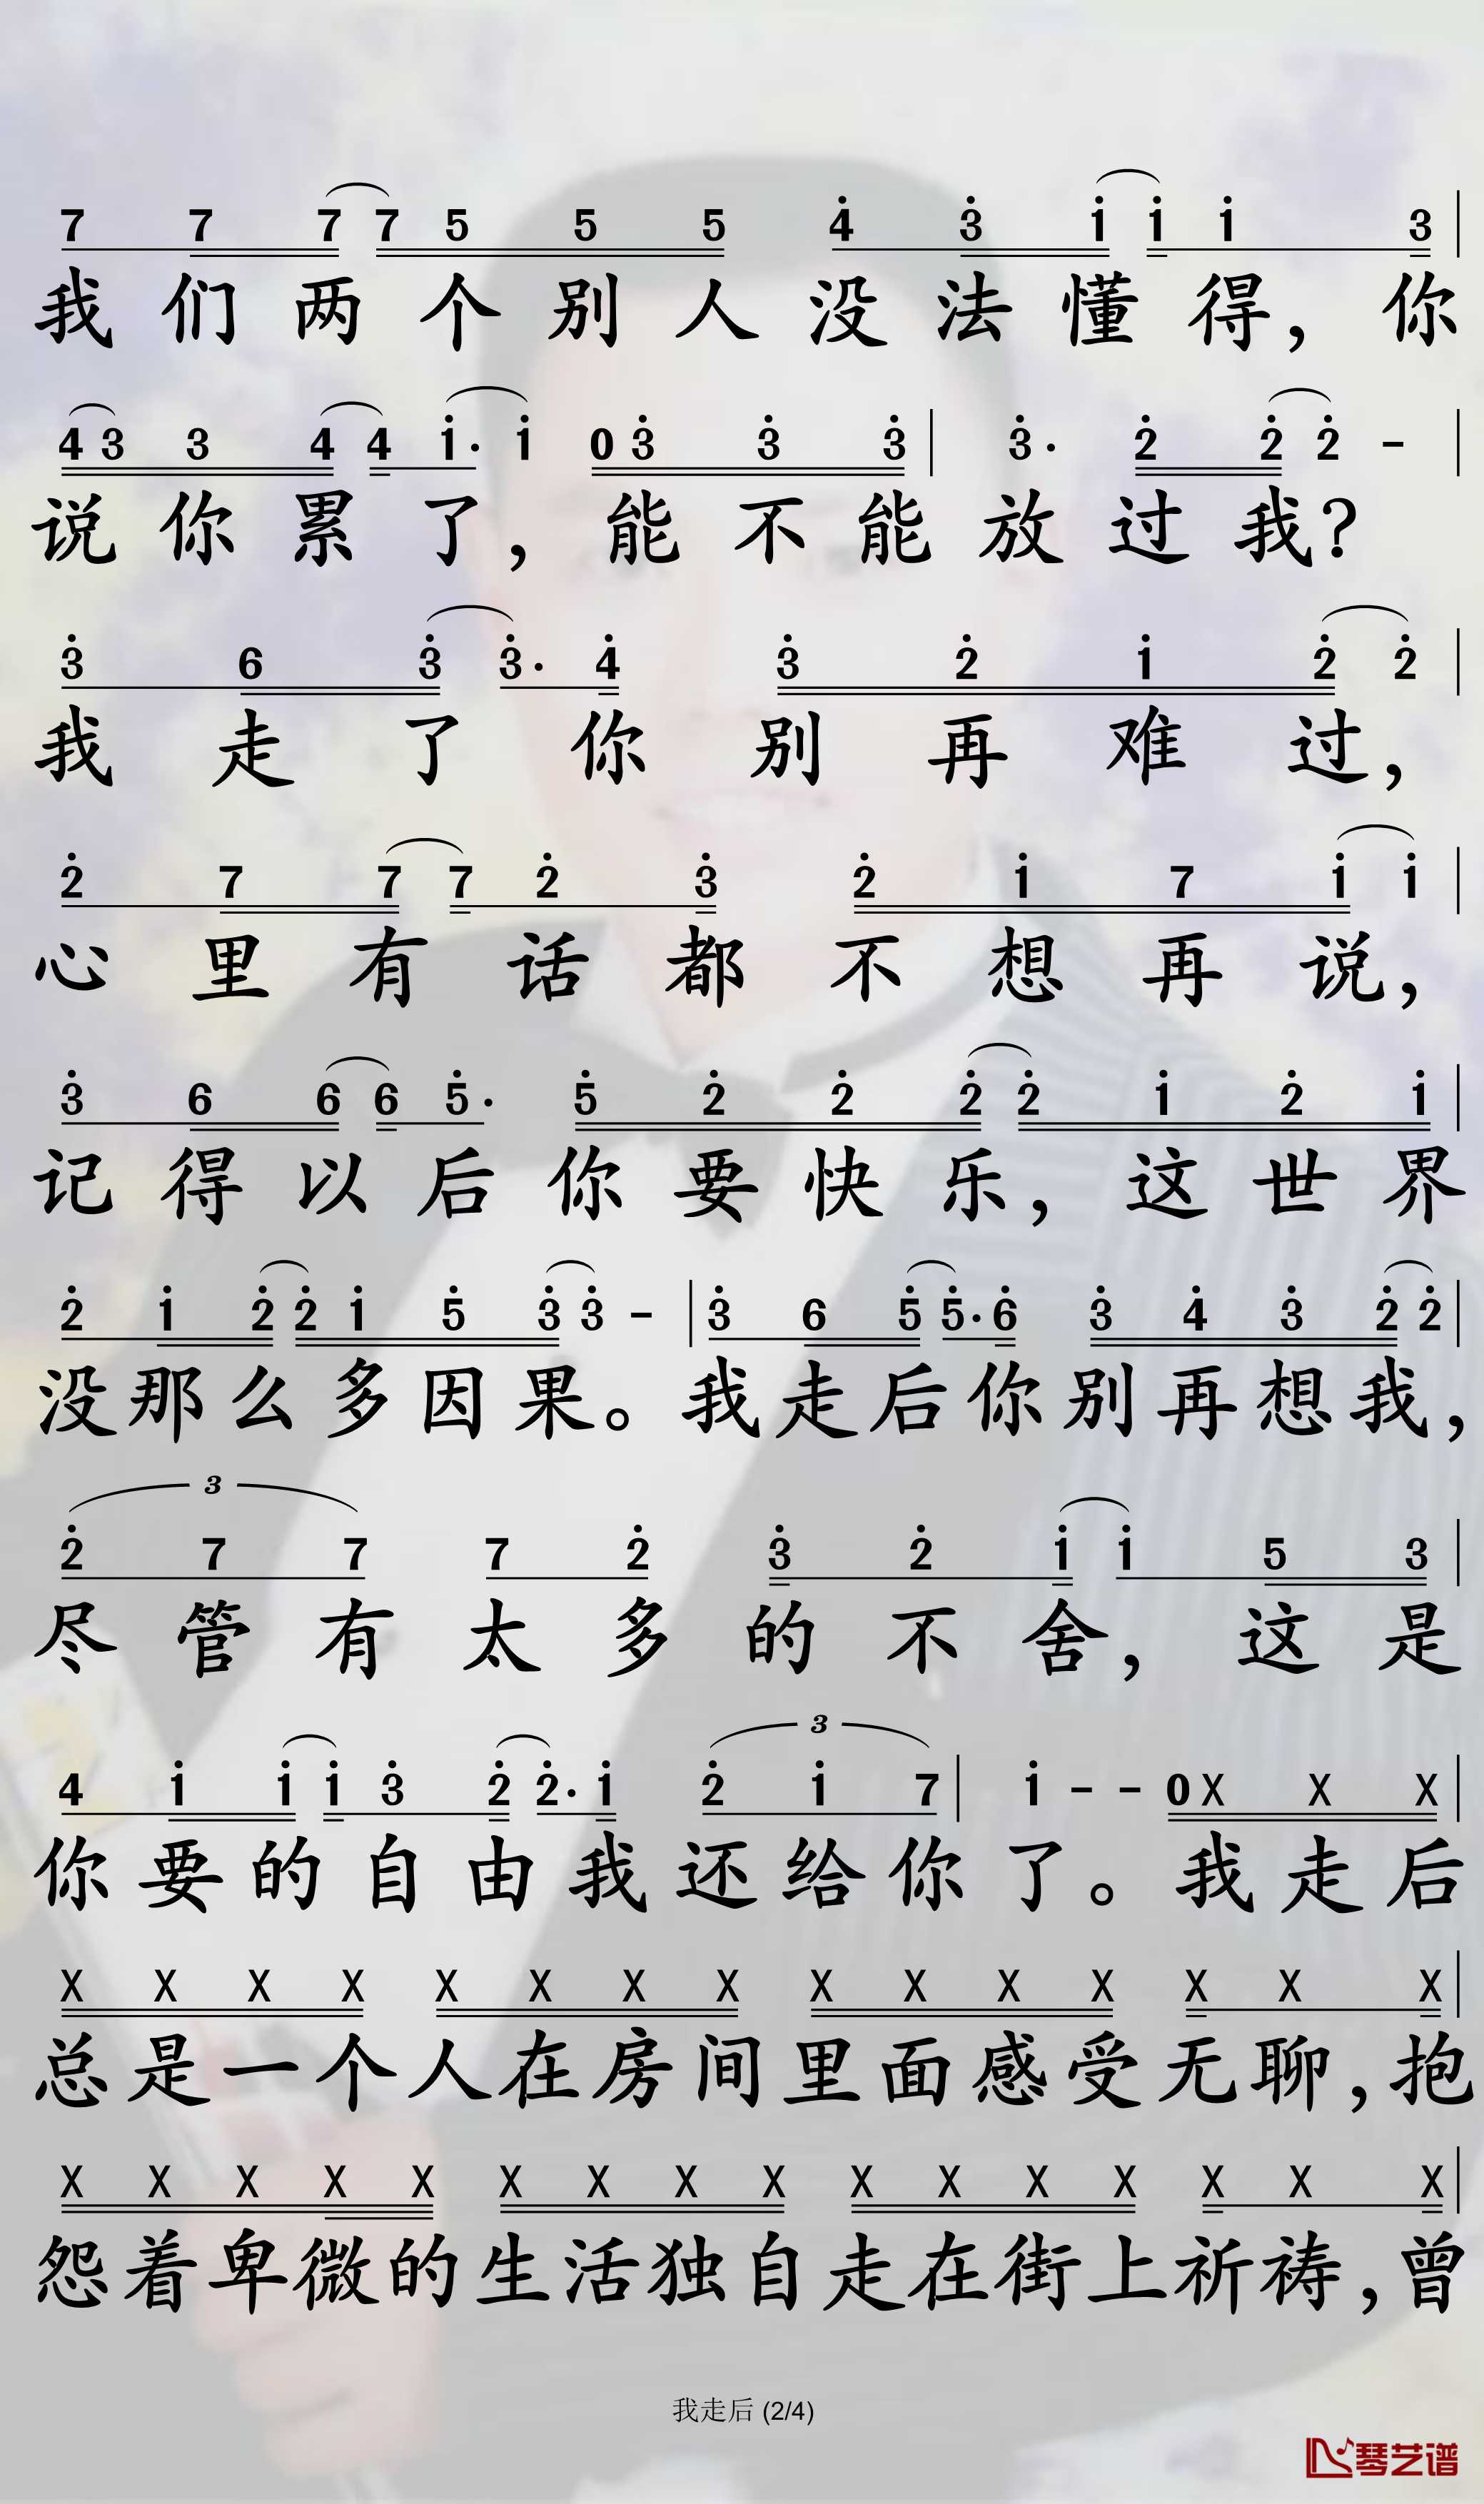 7 7 7 7 5 5 5 4̇ 3̇ 1̇ 1̇ 1̇ 3 |
我们两个别人没法懂得，你
4 3 3 4 4 1̇· 1̇ 0 3̇ 3̇ 3̇ | 3̇· 2̇ 2̇ 2̇ - |
说你累了，能不能放过我？
3̇ 6 3̇ 3̇· 4̇ 3̇ 2̇ 1̇ 2̇ 2̇ |
我走了你别再难过，
2̇ 7 7 7 2̇ 3̇ 2̇ 1̇ 7 1̇ 1̇ |
心里有话都不想再说，
3̇ 6 6 6 5̇· 5̇ 2̇ 2̇ 2̇ 2̇ 1̇ 2̇ 1̇ |
记得以后你要快乐，这世界
2̇ 1̇ 2̇ 2̇ 1̇ 5̇ 3̇ 3̇ - | 3̇ 6 5̇ 5̇· 6̇ 3̇ 4̇ 3̇ 2̇ 2̇ |
没那么多因果。我走后你别再想我，
3
2̇ 7 7 7 2̇ 3̇ 2̇ 1̇ 1̇ 5 3 |
尽管有太多的不舍，这是
3
4 1̇ 1̇ 1̇ 3̇ 2̇ 2̇· 1̇ 2̇ 1̇ 7 | 1̇ - - 0 X X X |
你要的自由我还给你了。我走后
X X X X X X X X X X X X X X X |
总是一个人在房间里面感受无聊，抱
X X X X X X X X X X X X X X X X |
怨着卑微的生活独自走在街上祈祷，曾
我走后 (2/4)
琴艺谱